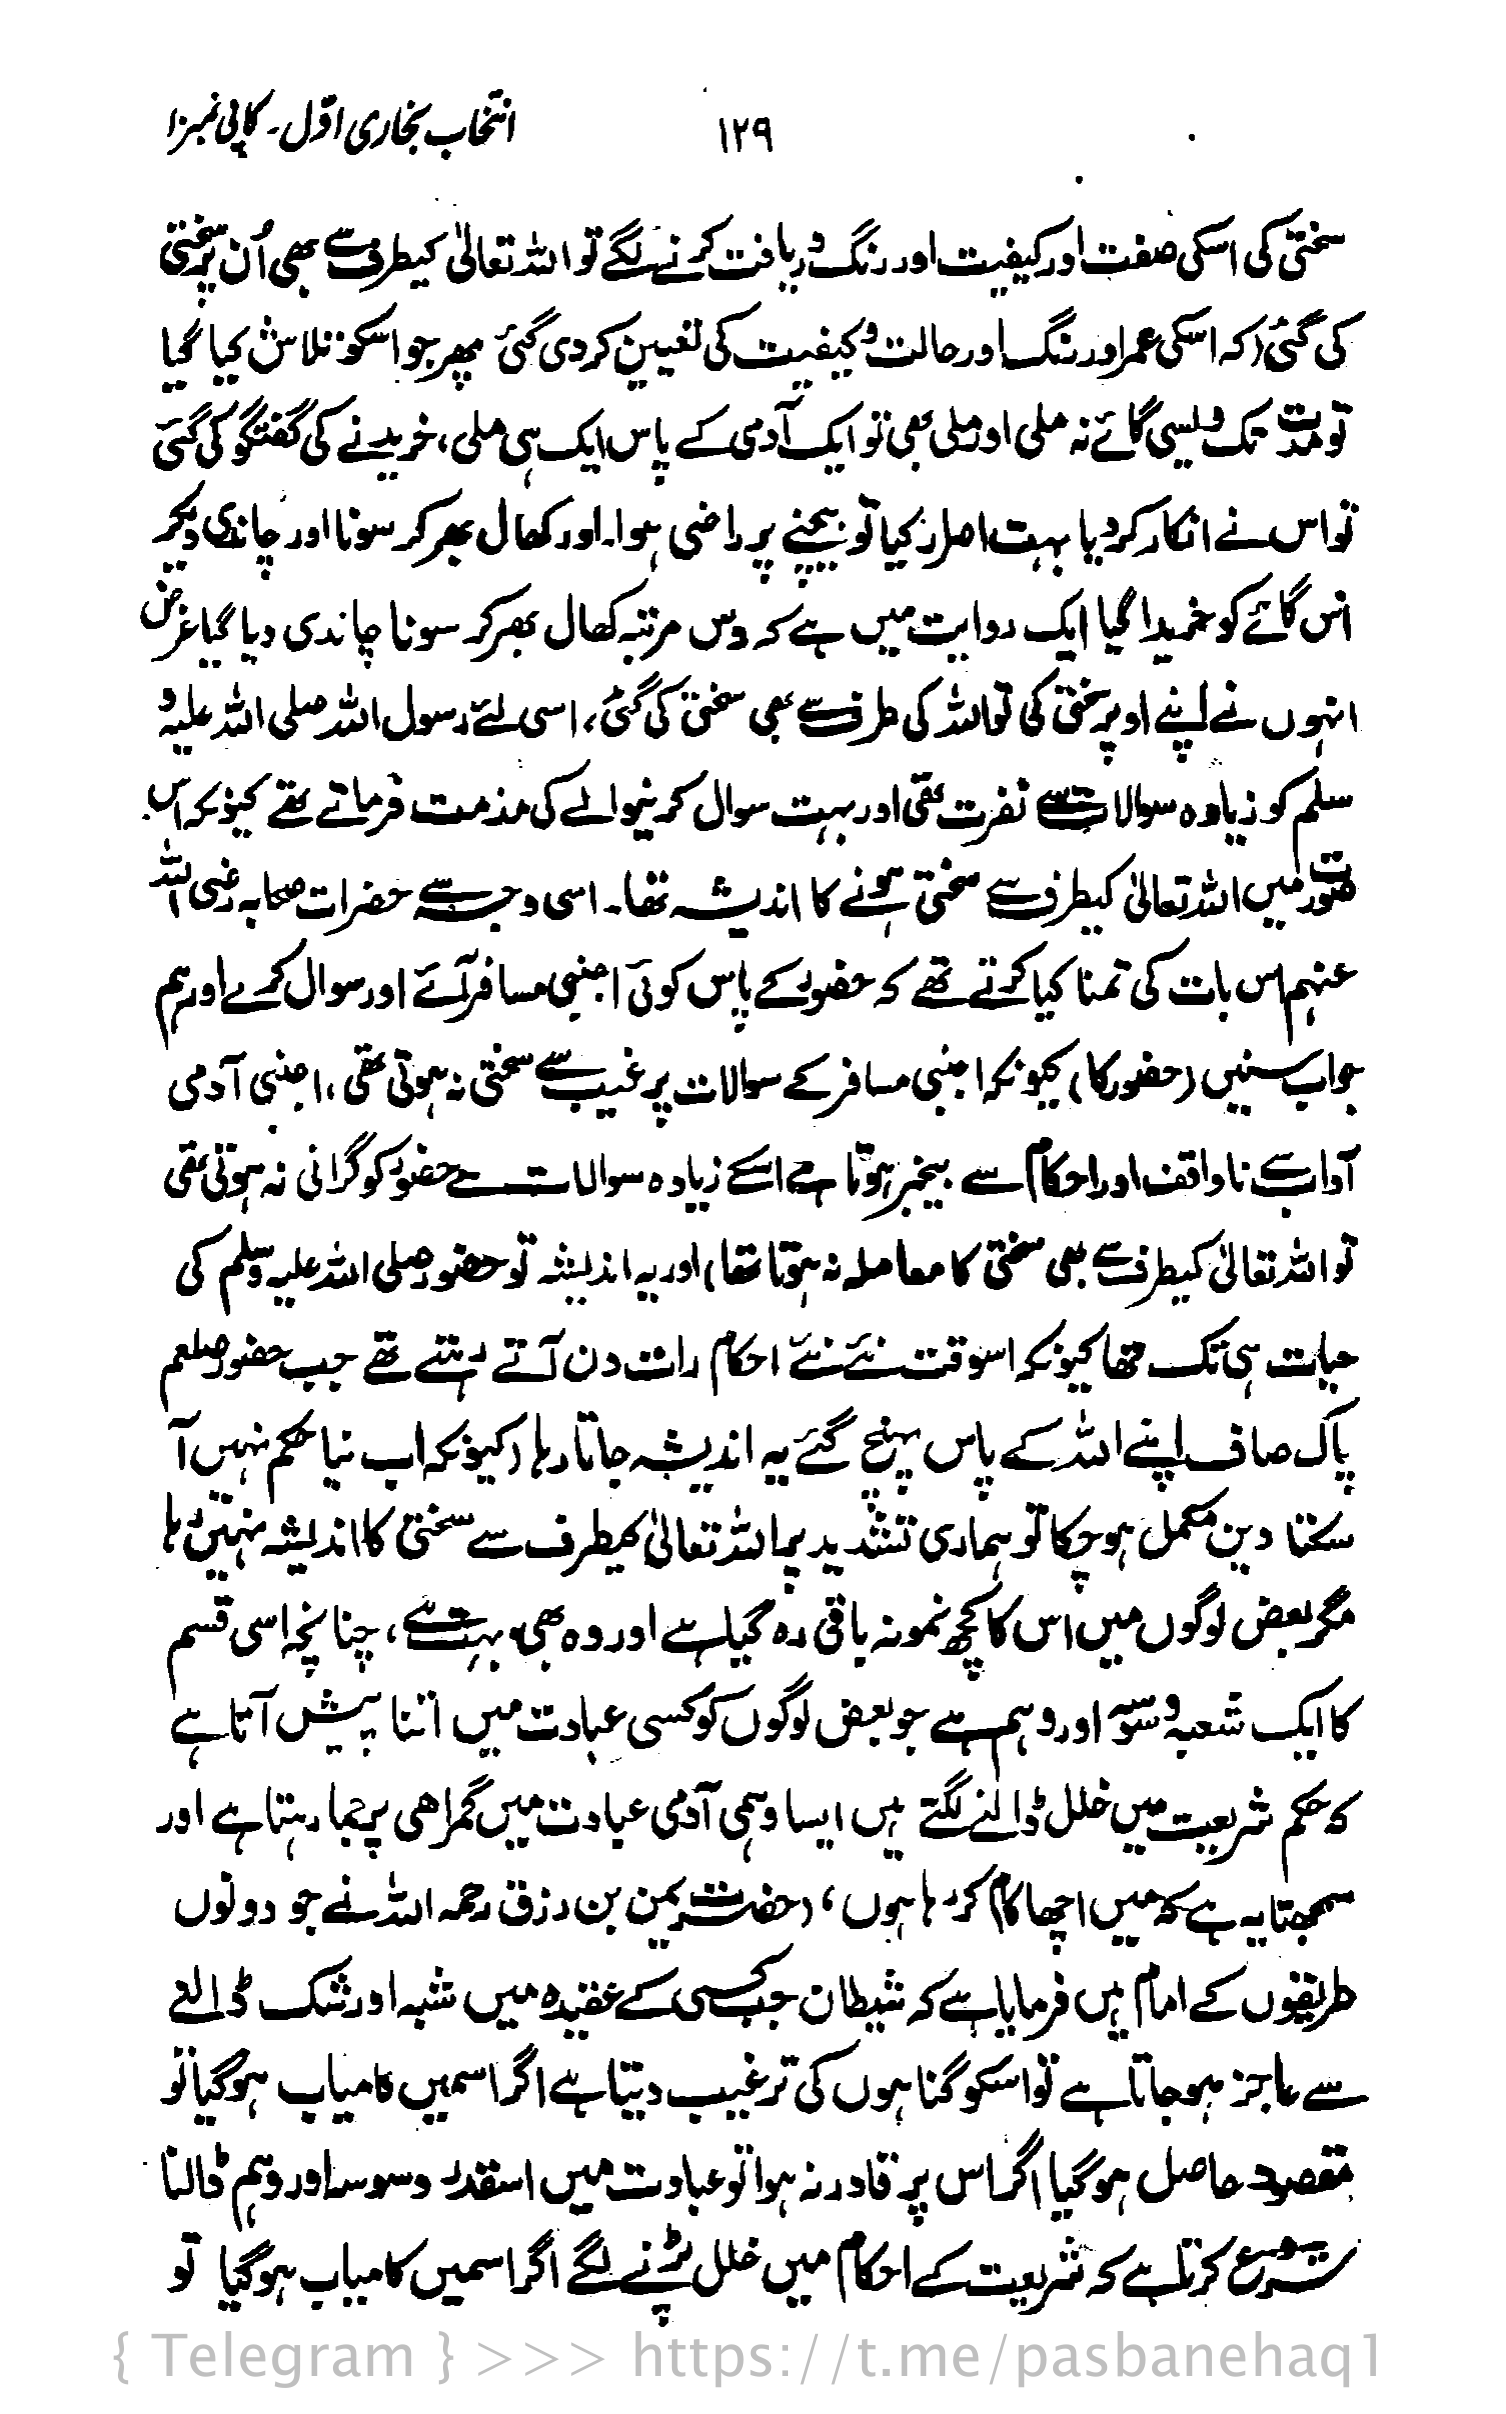 انتخاب بخاری اوّل۔ کاپی نمبر۱
۱۲۹
سختی کی اسکی صفت اور کیفیت اور رنگ دریافت کرنے لگے تو اللہ تعالیٰ کیطرف سے بھی اُن پر سختی
کی گئی (کہ اسکی عمر اور رنگ اور حالت و کیفیت کی تعیین کردی گئی پھر جو اسکو تلاش کیا گیا
تو مدت تک ویسی گائے نہ ملی اور ملی بھی تو ایک آدمی کے پاس ایک ہی ملی، خریدنے کی گفتگو کی گئی
تو اس نے انکار کردیا بہت اصرار کیا تو بیچنے پر راضی ہوا۔ اور کھال بھر کر سونا اور چاندی دیکر
اس گائے کو خریدا گیا ایک روایت میں ہے کہ دس مرتبہ کھال بھر کر سونا چاندی دیا گیا غرض
انہوں نے اپنے اوپر سختی کی تو اللہ کی طرف سے بھی سختی کی گئی، اسی لئے رسول اللہ صلی اللہ علیہ و
سلم کو زیادہ سوالات سے نفرت تھی اور بہت سوال کرنیوالے کی مذمت فرماتے تھے کیونکہ اس
صورت میں اللہ تعالیٰ کیطرف سے سختی ہونے کا اندیشہ تھا۔ اسی وجہ سے حضرات صحابہ رضی اللہ
عنہم اس بات کی تمنا کیا کرتے تھے کہ حضورؐ کے پاس کوئی اجنبی مسافر آئے اور سوال کرے اور ہم
جواب سنیں (حضور کا) کیونکہ اجنبی مسافر کے سوالات پر غیب سے سختی نہ ہوتی تھی، اجنبی آدمی
آداب سے ناواقف اور احکام سے بیخبر ہوتا ہے اسکے زیادہ سوالات سے حضورؐ کو گرانی نہ ہوتی تھی
تو اللہ تعالیٰ کیطرف سے بھی سختی کا معاملہ نہ ہوتا تھا) اور یہ اندیشہ تو حضور صلی اللہ علیہ وسلم کی
حیات ہی تک تھا کیونکہ اسوقت نئے نئے احکام رات دن آتے رہتے تھے جب حضور صلعم
پاک صاف اپنے اللہ کے پاس پہنچ گئے یہ اندیشہ جاتا رہا (کیونکہ اب نیا حکم نہیں آ
سکتا دین مکمل ہوچکا تو ہماری تشدید پر اللہ تعالیٰ کیطرف سے سختی کا اندیشہ نہیں رہا
مگر بعض لوگوں میں اس کا کچھ نمونہ باقی رہ گیا ہے اور وہ بھی بہت ہے، چنانچہ اسی قسم
کا ایک شعبہ وسوسہ اور وہم ہے جو بعض لوگوں کو کسی عبادت میں اتنا پیش آتا ہے
کہ حکم شریعت میں خلل ڈالنے لگتے ہیں ایسا وہمی آدمی عبادت میں گمراھی پر جما رہتا ہے اور
سمجھتا یہ ہے کہ میں اچھا کام کر رہا ہوں، (حضرت یمن بن رزق رحمہ اللہ نے جو دونوں
طریقوں کے امام ہیں فرمایا ہے کہ شیطان جب کسی کے عقیدہ میں شبہ اور شک ڈالنے
سے عاجز ہوجاتا ہے تو اسکو گناہوں کی ترغیب دیتا ہے اگر اسمیں کامیاب ہوگیا تو
مقصود حاصل ہوگیا اگر اس پر قادر نہ ہوا تو عبادت میں اسقدر وسوسہ اور وہم ڈالنا
شروع کرتا ہے کہ شریعت کے احکام میں خلل پڑنے لگے اگر اسمیں کامیاب ہوگیا تو
{ Telegram } >>> https://t.me/pasbanehaq1